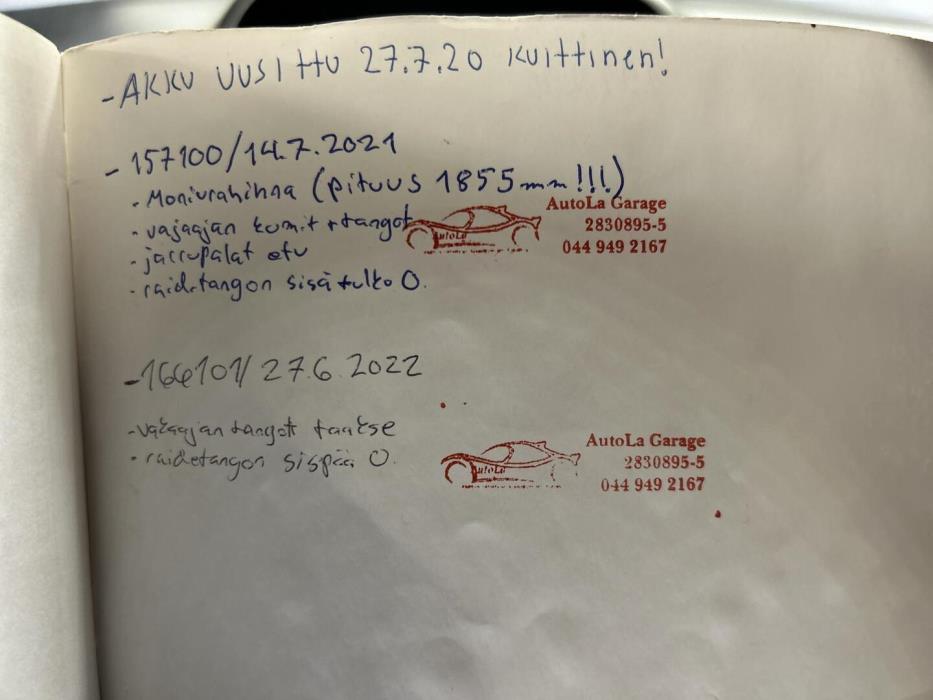 - AKKU UUSITTU 27.7.20 KUITTINEN!
- 157100/14.7.2021
• Moniurahihna (pituus 1855mm!!!)
• vajaajan kumit + tangot
• jarrupalat etu
• raidetangon sisä tulko O.
AutoLa
AutoLa Garage
2830895-5
044 949 2167
- 166101/27.6.2022
- vakaajan tangot taakse
• raidetangon sispää O.
AutoLa
AutoLa Garage
2830895-5
044 949 2167